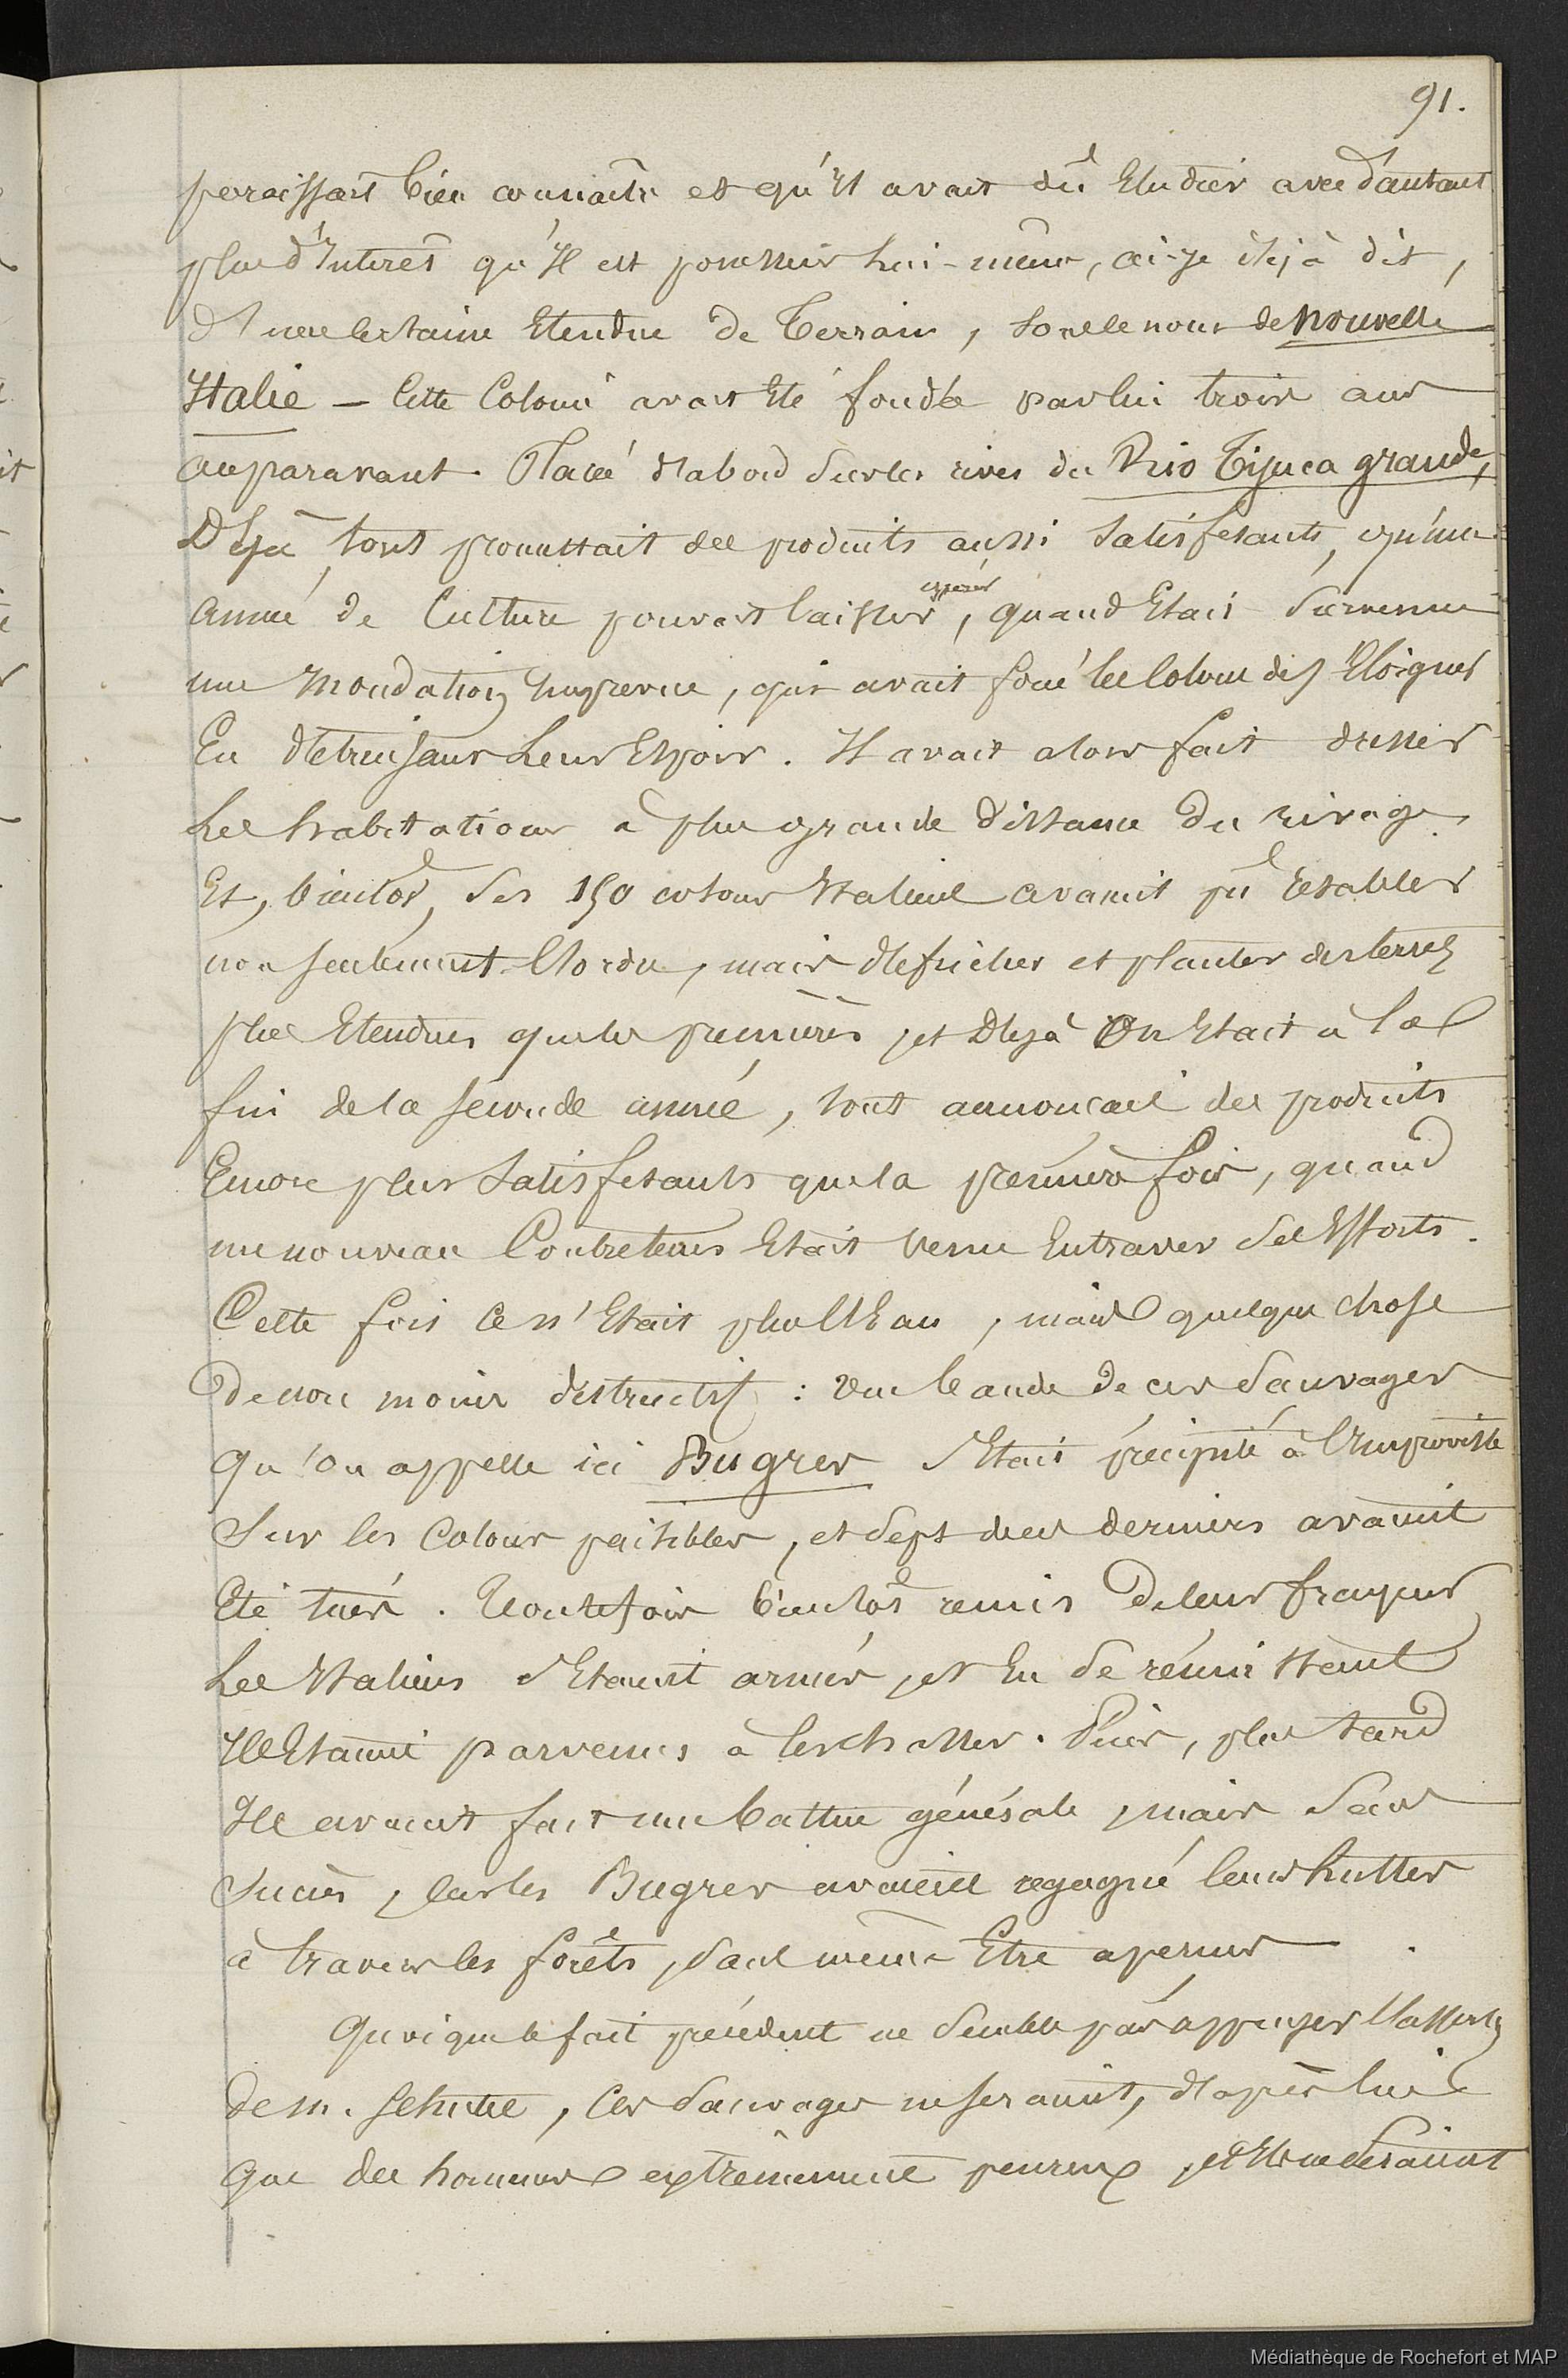 91.
paraissait bien connaître et qu'il avait dû Etudier avec d'autant
plus d'Interêt qu'Il est possesseur lui-même, ai-je déjà dit,
d'une certaine Etendue de Terrain, sous le nom de Nouvelle
Italie — Cette Colonie avait Eté fondée par lui trois ans
auparavant. Placée d'abord sur les rives du Rio Tijuca grande,
Déjà tout promettait des produits aussi satisfesants, qu'une
année de Culture pouvait laisser espérer, quand Etait survenue
une Inondation Imprevue, qui avait forcé les Colons de s'Eloigner
En détruisant leur Espoir. Il avait alors fait dresser
Les habitations à plus grande distance du rivage
Et, bientôt, ses 150 colons Italiens avaient pû rétablir
non seulement l'ordre, mais défricher et planter des terres
plus Etendues que les premières, et Déjà On Etait à la
fin de la seconde année, tout annonçait des produits
Encore plus satisfesants que la première fois, quand
un nouveau Contretems Etait venu Entraver ses Efforts.
Cette fois ce n'Etait plus l'Eau, mais quelque chose
de non moins destructif : une bande de ces sauvages
qu'on appelle ici Bugres s'Etait précipité à l'Improviste
Sur les Colons paisibles, et sept de ces derniers avaient
Eté tués. Toutefois bientôt remis de leur frayeur
Les Italiens s'Etaient armés, et En se réunissant
Ils Etaient parvenus à les chasser. Puis, plus tard
Ils avaient fait une battue générale, mais sans
Succès, car les Bugres avaient regagné leurs huttes
à travers les forêts, sans même Etre aperçus.
Quoique le fait précédent ne semble pas appuyer l'assertion
de M. Schutel, Ces sauvages ne seraient, d'après lui
que des hommes extrêmement peureux, et Ils ne seraient
Médiathèque de Rochefort et MAP